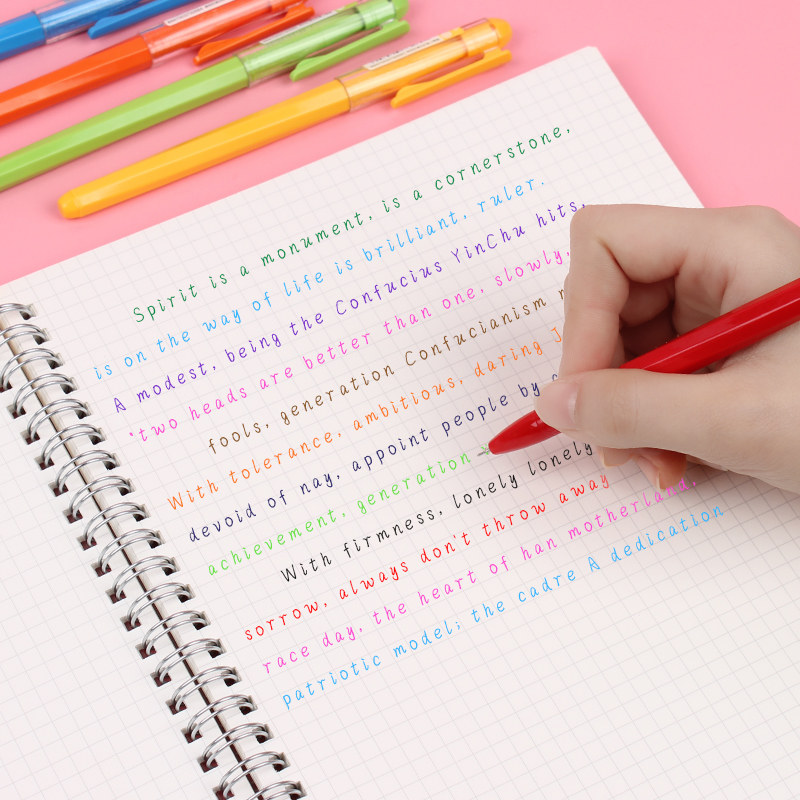 Spirit is a monument, is a cornerstone,
is on the way of life is brilliant, ruler.
A modest, being the Confucius YinChu hits,
'two heads are better than one, slowly,
fools, generation Confucianism
With tolerance, ambitious, daring
devoid of nay, appoint people by
achievement, generation
With firmness, lonely lonely
sorrow, always don't throw away
race day, the heart of han motherland,
patriotic model; the cadre A dedication